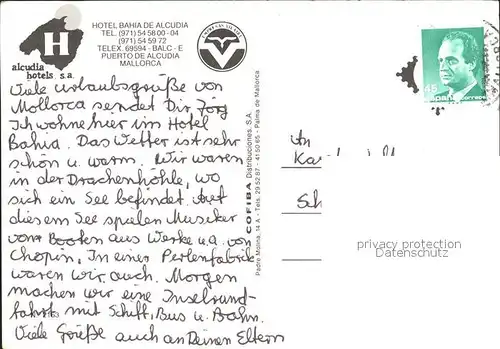 HOTEL BAHIA DE ALCUDIA
TEL. (971) 54 58 00 - 04
(971) 54 59 72
TELEX. 69594 - BALC - E
PUERTO DE ALCUDIA
MALLORCA
H
alcudia
hotels s.a.
Viele Urlaubsgrüße von
Mallorca sendet Dir Jörg
Ich wohne hier im Hotel
Bahia. Das Wetter ist sehr
schön u. warm. Wir waren
in der Drachenhöhle, wo
sich ein See befindet. Auf
diesem See spielen Musiker
von Booten aus Werke u.a. von
Chopin, In einer Perlenfabrik
waren wir auch. Morgen
machen wir eine Inselrund-
fahrt mit Schiff, Bus u. Bahn.
Viele Grüße auch an Deinen Eltern
COFIBA Distribuciones, S.A.
Padre Molina, 14 A - Tels. 29 52 87 - 41 50 65 - Palma de Mallorca
45
España correos
An
Sch
privacy protection
Datenschutz